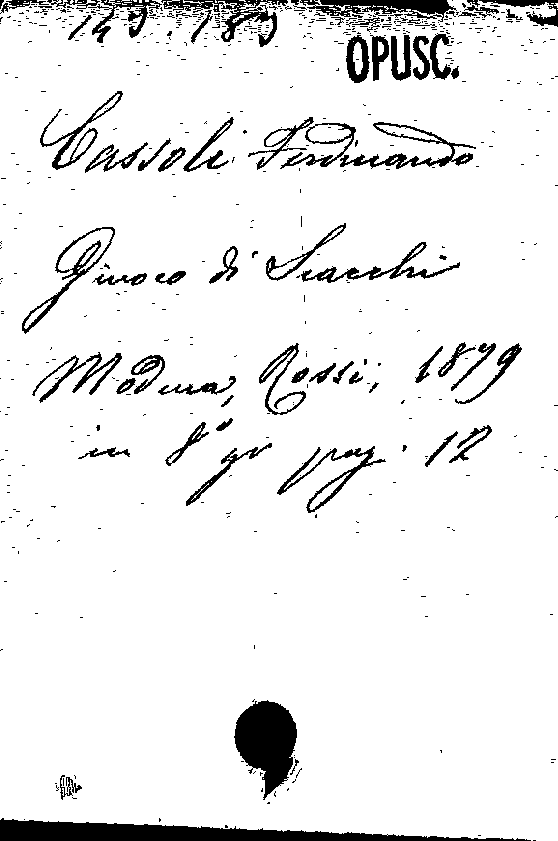 147.187
OPUSC.
Cassoli Ferdinando
Giuoco di Scacchi
Modena, Rossi, 1879
in 8° gr pag. 12